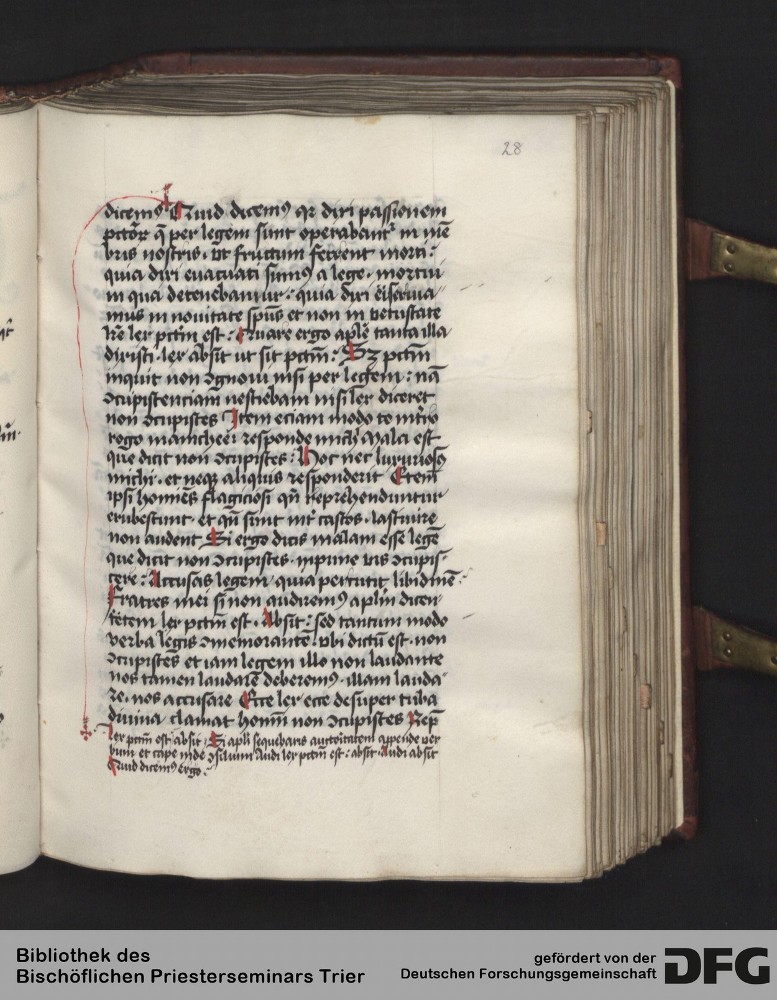 28
dicem⁹ Quid dicem⁹ qr dixi passionem
pctōꝝ q̄ per legem sunt operabant᷑ in mē
bris nostris. vt fructum ferrent morti:
quia dixi euacuati sum⁹ a lege. mortui
in qua detenebamur: quia dixi
mus in nouitate spūs et non in vetustate
lrē lex pctm̄ est: Quare ergo aplē tanta illa
dixisti. lex absit ut sit pctm̄: Sꝫ pctm̄
inquit non ꝯgnoui nisi per legem: nā
ꝯcupiscenciam nesciebam nisi lex diceret
non ꝯcupisces Item eciam modo te int̄ro
rogo manicheei responde michi Mala est
que dicit non ꝯcupisces: Hoc nec luxuriosꝰ
michi. et neqꝫ aliquis responderit Etem̄
ipsi homīes flagiciosi qn̄ reprehenduntur
erubescunt. et qn̄ sunt int᷑ castos. lasciuire
non audent Si ergo dicis malam esse legē
que dicit non ꝯcupisces. inpune vis ꝯcupis-
cere: Accusas legem. quia percutit libidinē:
Fratres mei si non audirem⁹ aplm̄ dicen-
tem lex pctm̄ est. Absit: sed tantum modo
verba legis ꝯmemorantē. vbi dictū est. non
ꝯcupisces et iam legem illo non laudante
nos tamen laudare deberem⁹. illam lauda-
re. nos accusare Ecce lex ecce desuper tuba
diuina clamat homī non ꝯcupisces Rep̄
lex pctm̄ est absit: Si apli sequebaris auctoritatem appende ver
bum et cape inde ꝯsilium Audi lex pctm̄ est: absit. Audi absit
Quid dicem⁹ ergo.
Bibliothek des
Bischöflichen Priesterseminars Trier
gefördert von der
Deutschen Forschungsgemeinschaft
DFG